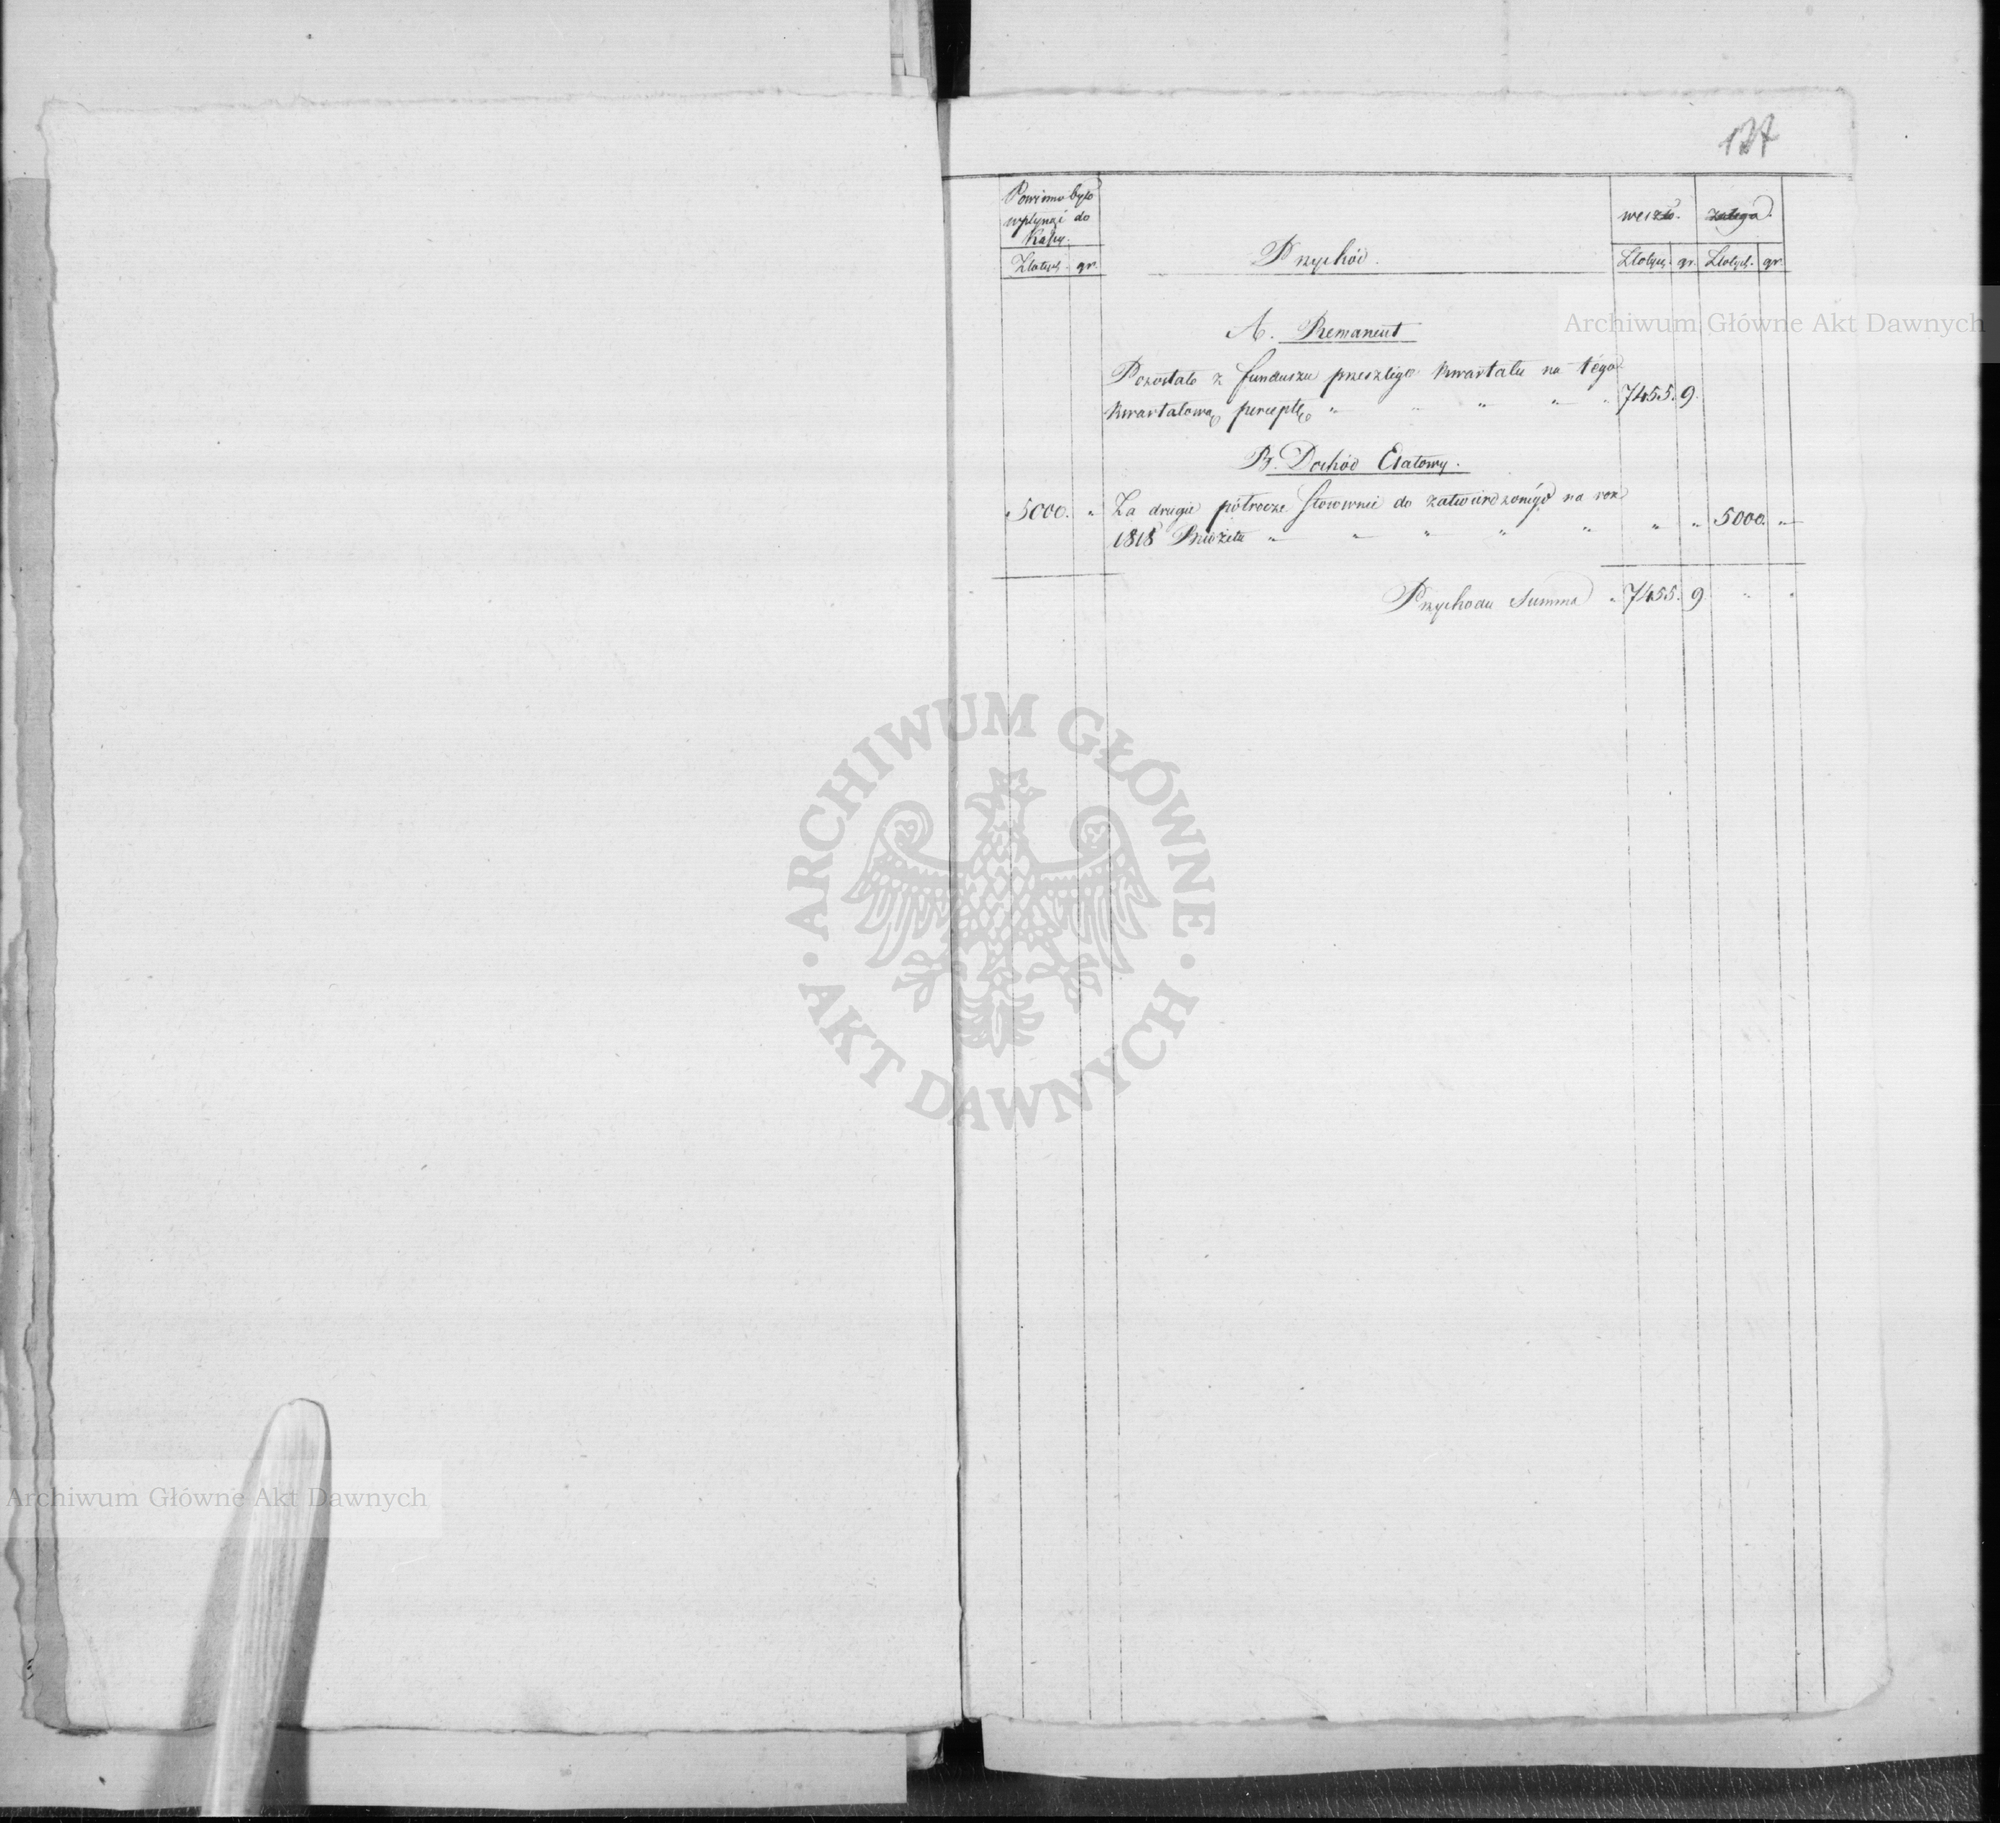 127
Powinno było
wpłynąć do
Kassy.
Złotych. gr.
Przychód.
weszło.
zalega.
Złotych. gr. Złotych. gr.
A. Remanent
Pozostało z funduszu przeszłego kwartału na tego
kwartalową perceptę " " " " " 7455. 9.
B. Dochód Etatowy.
5000. " Za drugie półrocze stosownie do zatwierdzonego na rok
1818 Budżetu " " " " " " " 5000. "
Przychodu Summa " 7455. 9 " "
Archiwum Główne Akt Dawnych
ARCHIWUM GŁÓWNE · AKT DAWNYCH ·
Archiwum Główne Akt Dawnych